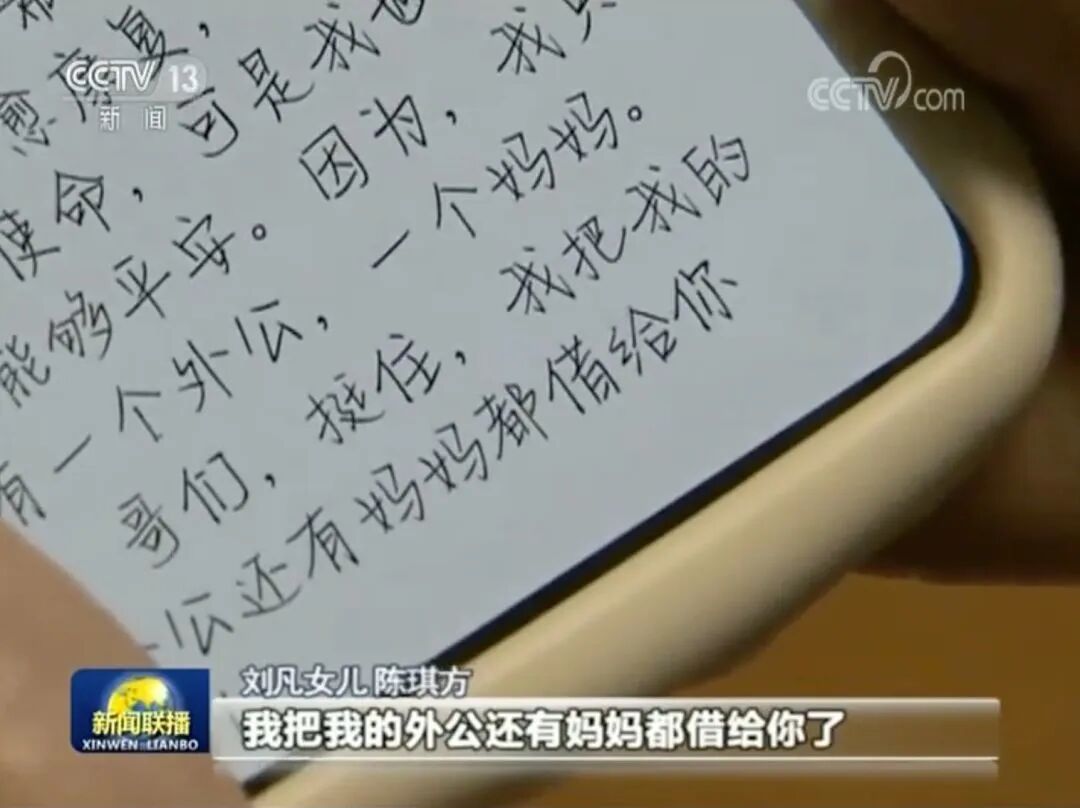 CCTV 13
新闻
CCTV.com
愈康复,
使命,可是我也
能够平安。因为,我只
有一个外公,一个妈妈。
哥们,挺住,我把我的
公还有妈妈都借给你
刘凡女儿 陈琪方
新闻联播
XINWEN LIANBO
我把我的外公还有妈妈都借给你了